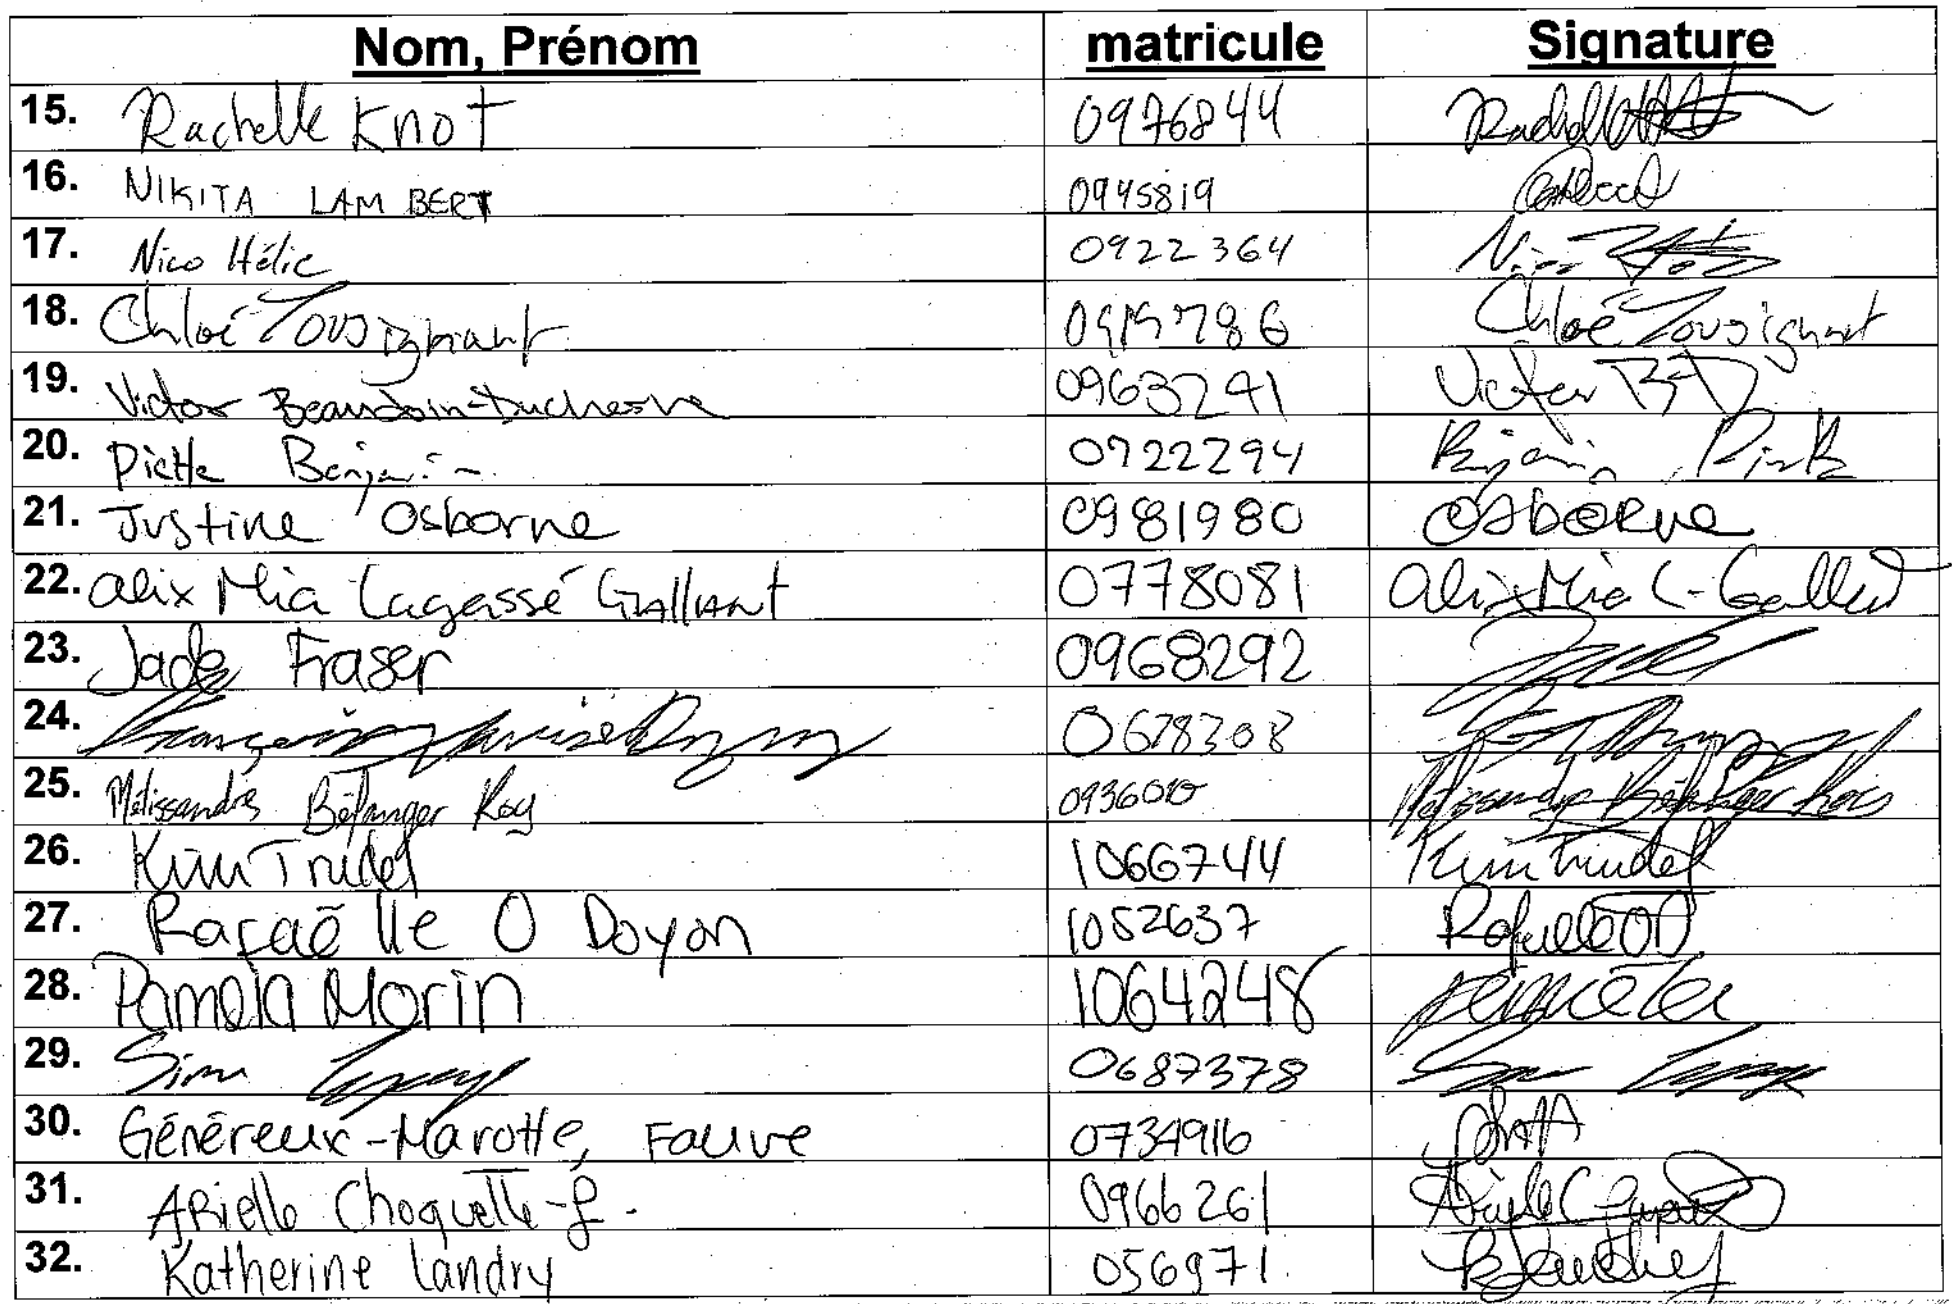 Nom, Prénom matricule Signature
15. Rachelle Knot 0976844
16. NIKITA LAMBERT 0945819
17. Nico Hélie 0922364
18. Chloé Tousignant 0919786 Chloé Tousignant
19. Victor Beaudoin-Duchesne 0963291 Victor BD
20. Piette Benjamin 0722294
21. Justine Osborne 0981980 Osborne
22. Alix Mia Lagassé Gallant 0778081 Alix Mia L-Gallant
23. Jade Fraser 0968292 Jade
24. 0678308
25. Mélissandre Bélanger Roy 0936010
26. Kim Trudel 1066744 Kim Trudel
27. Rafaëlle O Doyon 1052637
28. Pamela Morin 1064248
29. 0687378
30. Généreux-Marotte, Fauve 0734916
31. Arielle Choquette-G. 0966261
32. Katherine Landry 056971